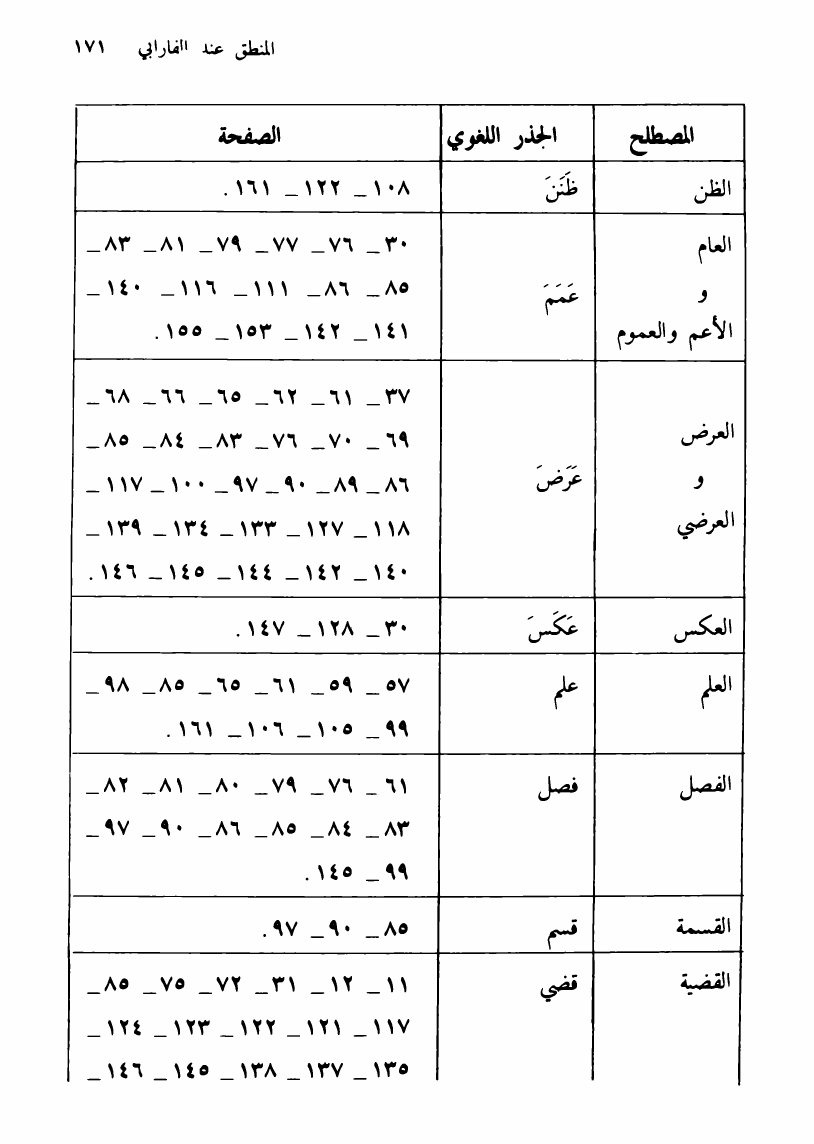 المنطق عند الفارابي ١٧١
المصطلح الجذر اللغوي الصفحة
الظن ظَنَنَ ١٠٨ _ ١٢٢ _ ١٦١.
العام
و
الأعم والعموم
عَمَمَ
٣٠ _ ٧٦ _ ٧٧ _ ٧٩ _ ٨١ _ ٨٣ _
٨٥ _ ٨٦ _ ١١١ _ ١١٦ _ ١٤٠ _
١٤١ _ ١٤٢ _ ١٥٣ _ ١٥٥.
العرض
و
العرضي
عَرَضَ
٣٧ _ ٦١ _ ٦٢ _ ٦٥ _ ٦٦ _ ٦٨ _
٦٩ _ ٧٠ _ ٧٦ _ ٨٣ _ ٨٤ _ ٨٥ _
٨٦ _ ٨٩ _ ٩٠ _ ٩٧ _ ١٠٠ _ ١١٧ _
١١٨ _ ١٢٧ _ ١٣٣ _ ١٣٤ _ ١٣٩ _
١٤٠ _ ١٤٢ _ ١٤٤ _ ١٤٥ _ ١٤٦.
العكس عَكَسَ ٣٠ _ ١٢٨ _ ١٤٧.
العلم علم ٥٧ _ ٥٩ _ ٦١ _ ٦٥ _ ٨٥ _ ٩٨ _
٩٩ _ ١٠٥ _ ١٠٦ _ ١٦١.
الفصل فصل ٦١ _ ٧٦ _ ٧٩ _ ٨٠ _ ٨١ _ ٨٢ _
٨٣ _ ٨٤ _ ٨٥ _ ٨٦ _ ٩٠ _ ٩٧ _
٩٩ _ ١٤٥.
القسمة قسم ٨٥ _ ٩٠ _ ٩٧.
القضية قضي ١١ _ ١٢ _ ٣١ _ ٧٢ _ ٧٥ _ ٨٥ _
١١٧ _ ١٢١ _ ١٢٢ _ ١٢٣ _ ١٢٤ _
١٣٥ _ ١٣٧ _ ١٣٨ _ ١٤٥ _ ١٤٦ _